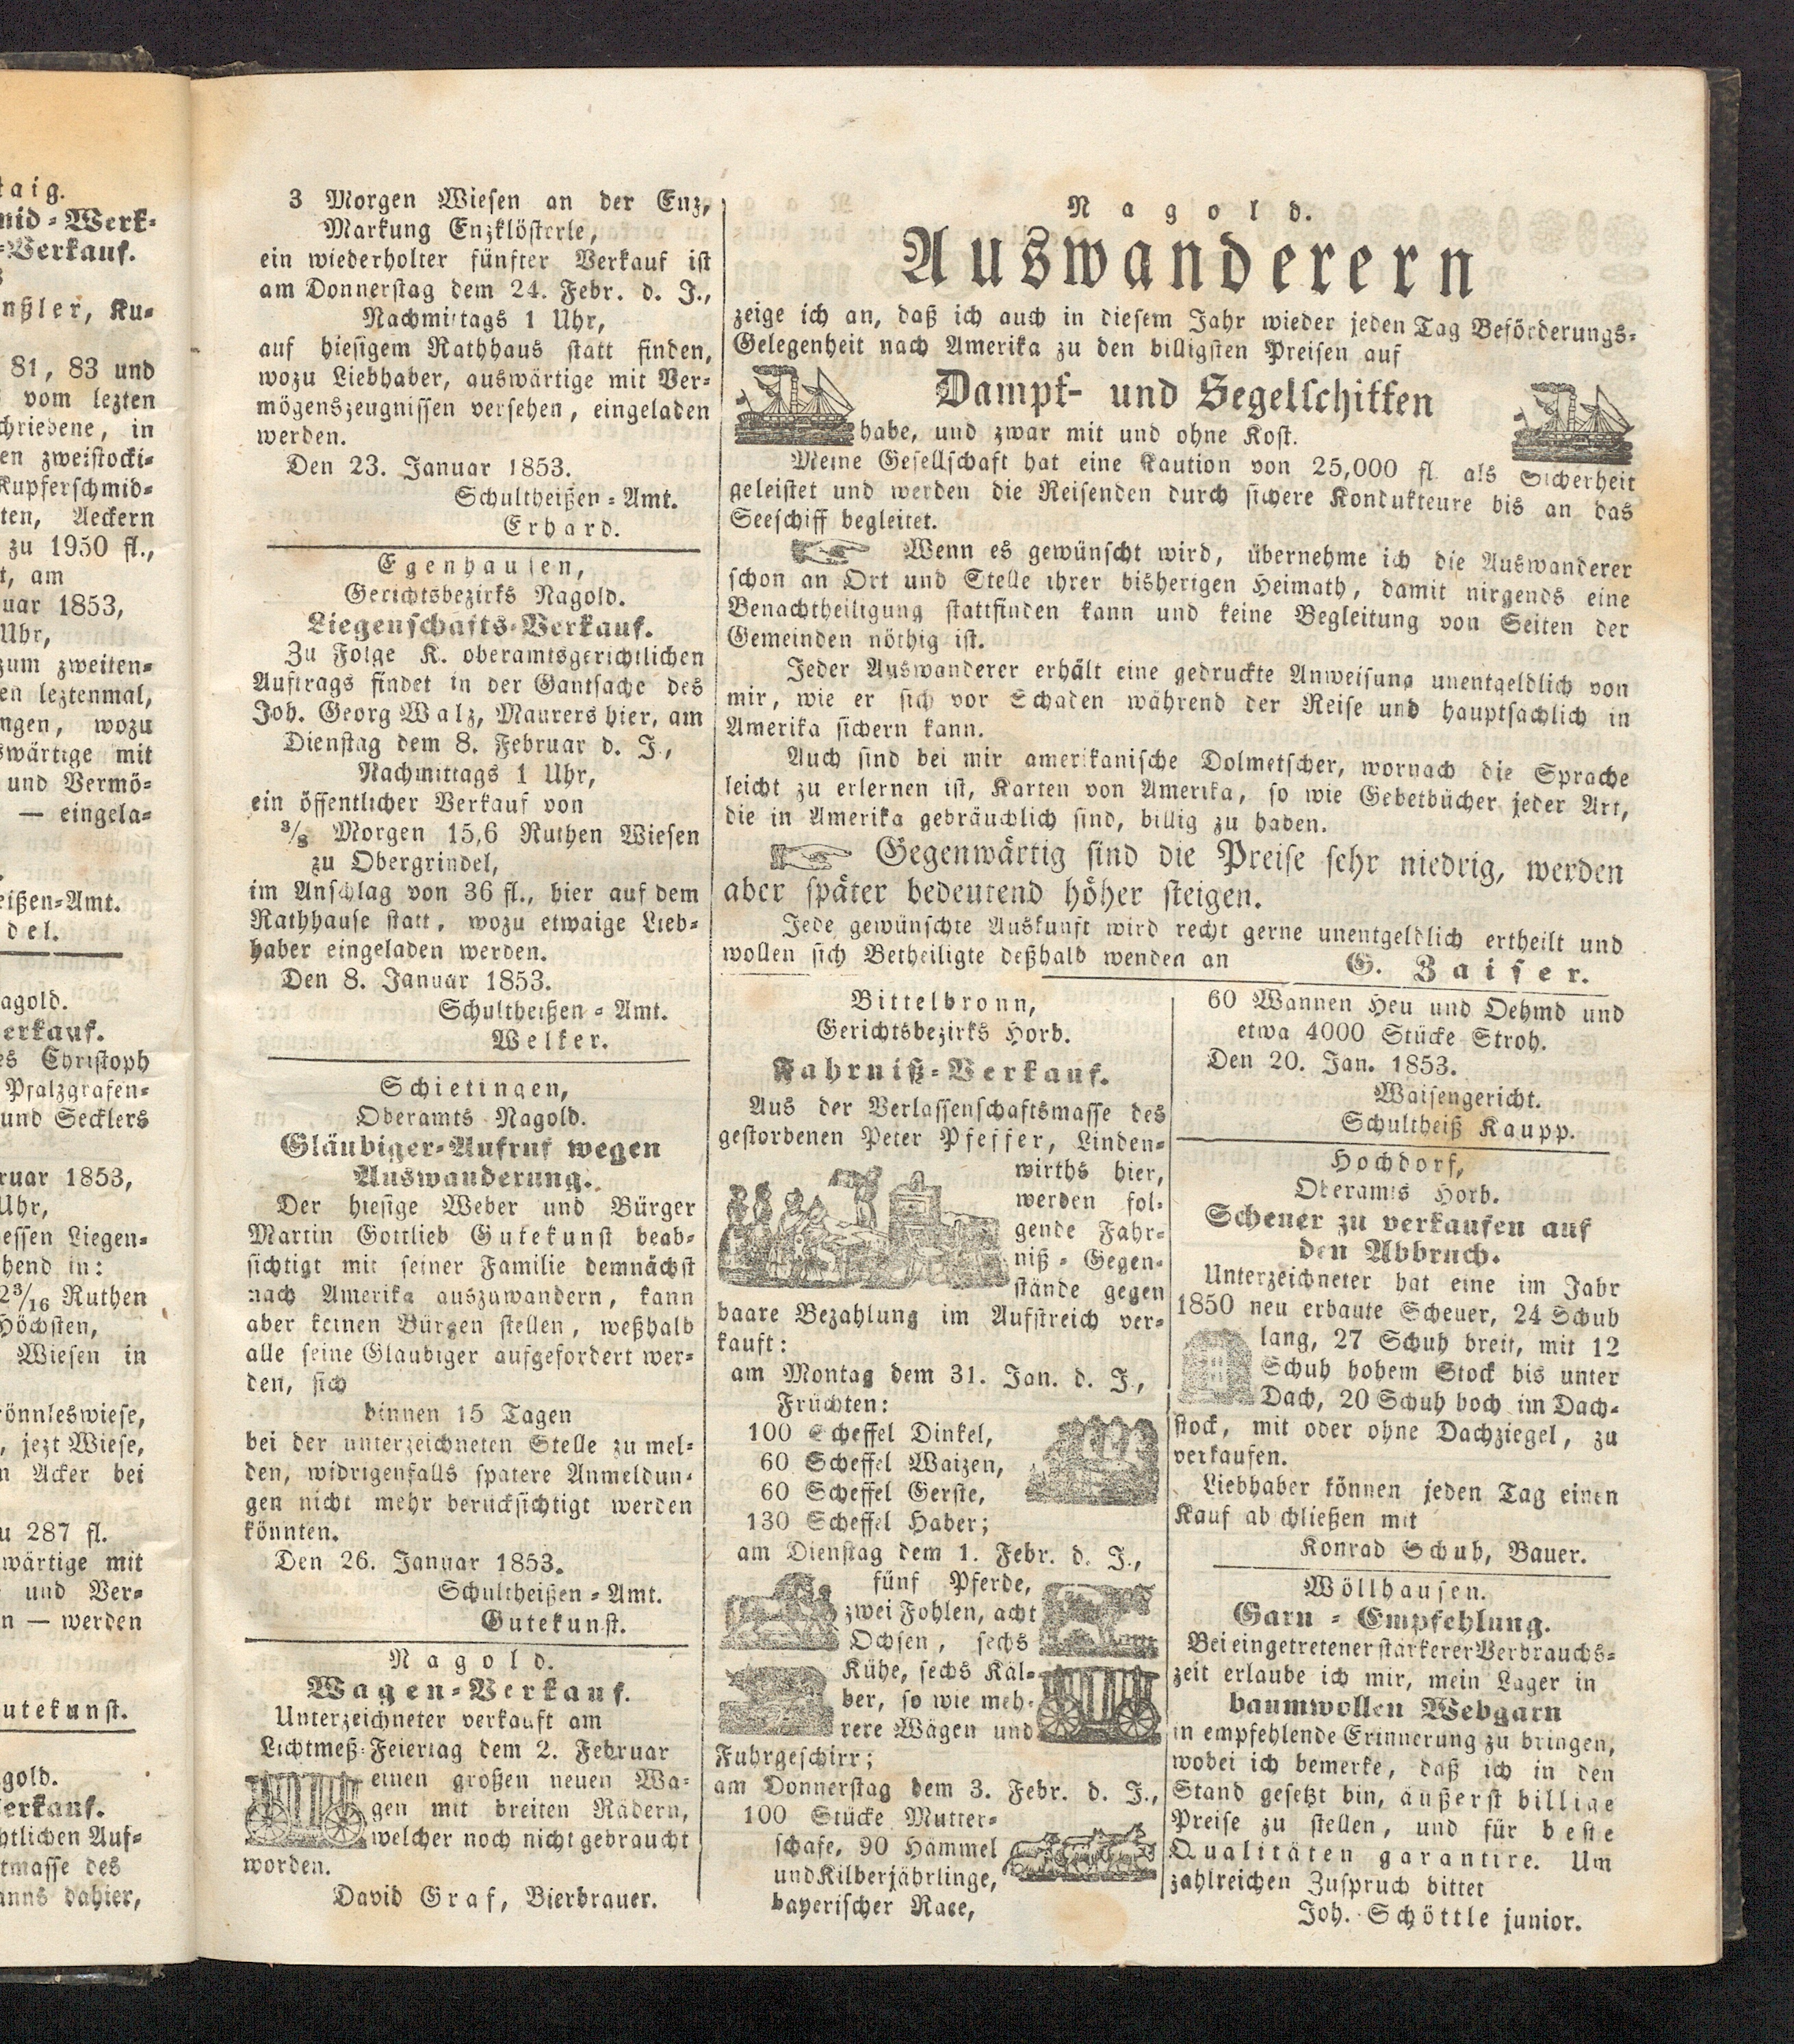 taig.
mid-Werk-
-Verkauf.
nßler, Ku-
81, 83 und
vom lezten
chriebene, in
en zweistocki-
Kupferschmid-
ten, Aeckern
zu 1950 fl.,
t, am
uar 1853,
Uhr,
zum zweiten-
en leztenmal,
ngen, wozu
swärtige mit
und Vermö-
— eingela-
eißen-Amt.
del.
agold.
erkauf.
es Christoph
Pfalzgrafen-
und Secklers
ruar 1853,
Uhr,
essen Liegen-
hend in:
2 3/16 Ruthen
Höchsten,
Wiesen in
rönnleswiese,
, jezt Wiese,
n Acker bei
u 287 fl.
wärtige mit
und Ver-
n — werden
utekunst.
gold.
erkauf.
htlichen Auf-
tmasse des
anns dahier,
3 Morgen Wiesen an der Enz,
Markung Enzklösterle,
ein wiederholter fünfter Verkauf ist
am Donnerstag dem 24. Febr. d. J.,
Nachmittags 1 Uhr,
auf hiesigem Rathhaus statt finden,
wozu Liebhaber, auswärtige mit Ver-
mögenszeugnissen versehen, eingeladen
werden.
Den 23. Januar 1853.
Schultheißen-Amt.
Erhard.
Egenhausen,
Gerichtsbezirks Nagold.
Liegenschafts-Verkauf.
Zu Folge K. oberamtsgerichtlichen
Auftrags findet in der Gantsache des
Joh. Georg Walz, Maurers hier, am
Dienstag dem 8. Februar d. J.,
Nachmittags 1 Uhr,
ein öffentlicher Verkauf von
3/8 Morgen 15,6 Ruthen Wiesen
zu Obergrindel,
im Anschlag von 36 fl., hier auf dem
Rathhause statt, wozu etwaige Lieb-
haber eingeladen werden.
Den 8. Januar 1853.
Schultheißen-Amt.
Welker.
Schietingen,
Oberamts Nagold.
Gläubiger-Aufruf wegen
Auswanderung.
Der hiesige Weber und Bürger
Martin Gottlieb Gutekunst beab-
sichtigt mit seiner Familie demnächst
nach Amerika auszuwandern, kann
aber keinen Bürgen stellen, weßhalb
alle seine Glaubiger aufgefordert wer-
den, sich
binnen 15 Tagen
bei der unterzeichneten Stelle zu mel-
den, widrigenfalls spatere Anmeldun-
gen nicht mehr berücksichtigt werden
könnten.
Den 26. Januar 1853.
Schultheißen-Amt.
Gutekunst.
Nagold.
Wagen-Verkauf.
Unterzeichneter verkauft am
Lichtmeß-Feiertag dem 2. Februar
einen großen neuen Wa-
gen mit breiten Rädern,
welcher noch nicht gebraucht
worden.
David Graf, Bierbrauer.
Nagold.
Auswanderern
zeige ich an, daß ich auch in diesem Jahr wieder jeden Tag Beförderungs-
Gelegenheit nach Amerika zu den billigsten Preisen auf
Dampf- und Segelschiffen
habe, und zwar mit und ohne Kost.
Meine Gesellschaft hat eine Kaution von 25,000 fl. als Sicherheit
geleistet und werden die Reisenden durch sichere Kondukteure bis an das
Seeschiff begleitet.
☞ Wenn es gewünscht wird, übernehme ich die Auswanderer
schon an Ort und Stelle ihrer bisherigen Heimath, damit nirgends eine
Benachtheiligung stattfinden kann und keine Begleitung von Seiten der
Gemeinden nöthig ist.
Jeder Auswanderer erhält eine gedruckte Anweisung unentgeldlich von
mir, wie er sich vor Schaden während der Reise und hauptsachlich in
Amerika sichern kann.
Auch sind bei mir amerikanische Dolmetscher, wornach die Sprache
leicht zu erlernen ist, Karten von Amerika, so wie Gebetbücher jeder Art,
die in Amerika gebräuchlich sind, billig zu haben.
☞ Gegenwärtig sind die Preise sehr niedrig, werden
aber später bedeutend höher steigen.
Jede gewünschte Auskunft wird recht gerne unentgeldlich ertheilt und
wollen sich Betheiligte deßhalb wenden an
G. Zaiser.
Bittelbronn,
Gerichtsbezirks Horb.
Fahrniß-Verkauf.
Aus der Verlassenschaftsmasse des
gestorbenen Peter Pfeffer, Linden-
wirths hier,
werden fol-
gende Fahr-
niß-Gegen-
stände gegen
baare Bezahlung im Aufstreich ver-
kauft:
am Montag dem 31. Jan. d. J.,
Früchten:
100 Scheffel Dinkel,
60 Scheffel Waizen,
60 Scheffel Gerste,
130 Scheffel Haber;
am Dienstag dem 1. Febr. d. J.,
fünf Pferde,
zwei Fohlen, acht
Ochsen, sechs
Kühe, sechs Käl-
ber, so wie meh-
rere Wägen und
Fuhrgeschirr;
am Donnerstag dem 3. Febr. d. J.,
100 Stücke Mutter-
schafe, 90 Hämmel
und Kilberjährlinge,
bayerischer Race,
60 Wannen Heu und Oehmd und
etwa 4000 Stücke Stroh.
Den 20. Jan. 1853.
Waisengericht.
Schultheiß Kaupp.
Hochdorf,
Oberamts Horb.
Scheuer zu verkaufen auf
den Abbruch.
Unterzeichneter hat eine im Jahr
1850 neu erbaute Scheuer, 24 Schuh
lang, 27 Schuh breit, mit 12
Schuh hohem Stock bis unter
Dach, 20 Schuh hoch im Dach-
stock, mit oder ohne Dachziegel, zu
verkaufen.
Liebhaber können jeden Tag einen
Kauf abschließen mit
Konrad Schuh, Bauer.
Wöllhausen.
Garn-Empfehlung.
Bei eingetretener stärkerer Verbrauchs-
zeit erlaube ich mir, mein Lager in
baumwollen Webgarn
in empfehlende Erinnerung zu bringen,
wobei ich bemerke, daß ich in den
Stand gesetzt bin, äußerst billige
Preise zu stellen, und für beste
Qualitäten garantire. Um
zahlreichen Zuspruch bittet
Joh. Schöttle junior.